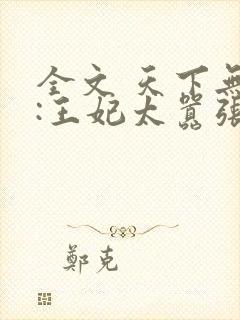 全文 天下無
:王妃太囂張
鄭克